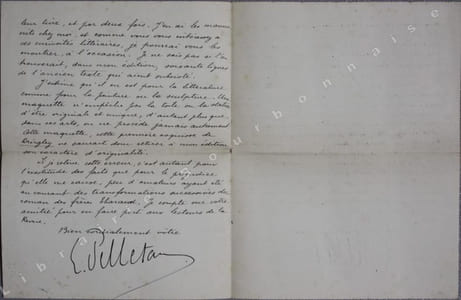 leur livre, et par deux fois. J'en ai les manus-
crits chez moi, et comme vous vous intéressez à
ces curiosités littéraires, je pourrai vous les
montrer, à l'occasion. Je ne sais pas si l'on
trouverait, dans mon édition, soixante lignes
de l'ancien texte qui aient subsisté.
J'estime qu'il en est pour la littérature
comme pour la peinture ou la sculpture. Une
maquette n'empêche pas la toile ou la statue
d'être originale et unique, d'autant plus que,
dans ces arts, on ne procède jamais autrement.
Cette maquette, cette première esquisse de
Dingley ne saurait donc retirer à mon édition
son caractère d'originalité.
Je relève cette erreur, c'est autant pour
l'exactitude des faits que pour le préjudice
qu'elle me cause, peu d'amateurs ayant été
au courant des transformations successives du
roman des frères Tharaud. Je compte sur votre
amitié pour en faire part aux lecteurs de la
Revue.
Bien cordialement vôtre
E. Pelletan
Librairie Bourbonnaise